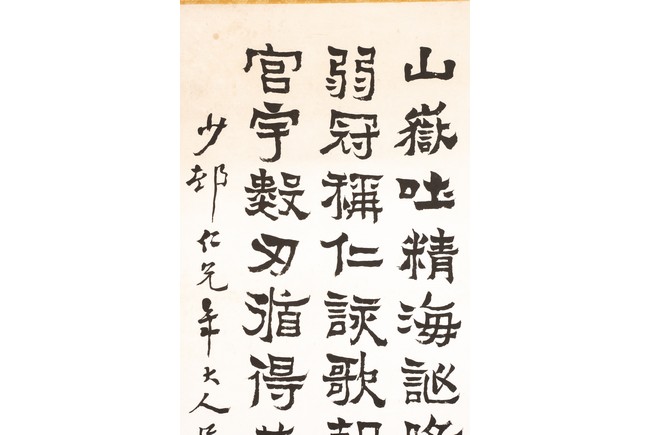 山嶽吐精海訫
弱冠稱仁詠歌朝
宮宇數刃循得其
少邨仁兄年大人